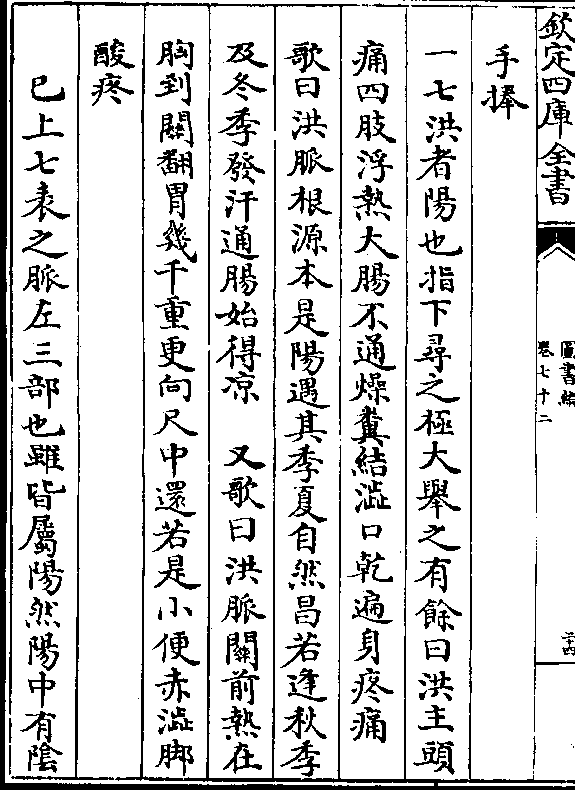 欽定四庫全書
圖書編
卷七十二
二十四
手捧
一七洪者陽也指下尋之極大舉之有餘曰洪主頭
痛四肢浮熱大腸不通燥糞結澁口乾遍身疼痛
歌曰洪脈根源本是陽遇其季夏自然昌若逢秋季
及冬季發汗通腸始得凉　又歌曰洪脈關前熱在
胸到關翻胃幾千重更向尺中還若是小便赤澁脚
酸疼
巳上七表之脈左三部也雖皆屬陽然陽中有陰